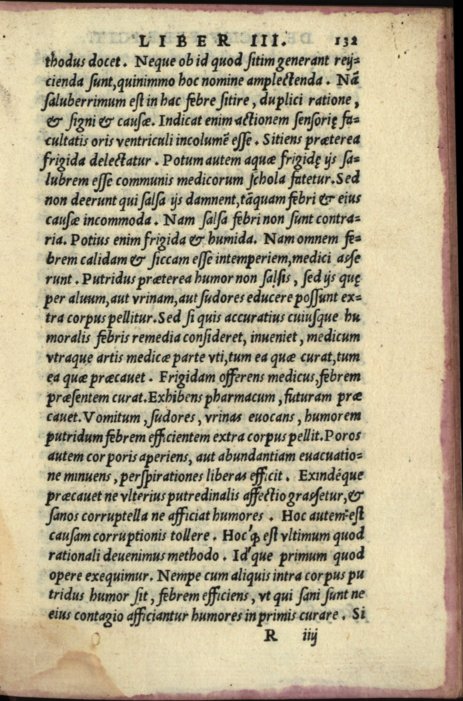 LIBER III. 132
thodus docet. Neque ob id quod sitim generant reij-
cienda sunt, quinimmo hoc nomine amplectenda. Nã
saluberrimum est in hac febre sitire, duplici ratione,
& signi & causæ. Indicat enim actionem sensorię fa-
cultatis oris ventriculi incolumẽ esse. Sitiens præterea
frigida delectatur. Potum autem aquæ frigidę ijs sa-
lubrem esse communis medicorum schola fatetur. Sed
non deerunt qui salsa ijs damnent, tãquam febri & eius
causæ incommoda. Nam salsa febri non sunt contra-
ria. Potius enim frigida & humida. Nam omnem fe-
brem calidam & siccam esse intemperiem, medici asse
runt. Putridus præterea humor non salsis, sed ijs quę
per aluum, aut vrinam, aut sudores educere possunt ex-
tra corpus pellitur. Sed si quis accuratius cuiusque hu
moralis febris remedia consideret, inueniet, medicum
vtraque artis medicæ parte vti, tum ea quæ curat, tum
ea quæ præcauet. Frigidam offerens medicus, febrem
præsentem curat. Exhibens pharmacum, futuram præ
cauet. Vomitum, sudores, vrinas euocans, humorem
putridum febrem efficientem extra corpus pellit. Poros
autem corporis aperiens, aut abundantiam euacuatio-
ne minuens, perspirationes liberas efficit. Exindéque
præcauet ne vlterius putredinalis affectio grassetur, &
sanos corruptella ne afficiat humores. Hoc autem est
causam corruptionis tollere. Hocꝙ́ est vltimum quod
rationali deuenimus methodo. Id'que primum quod
opere exequimur. Nempe cum aliquis intra corpus pu
tridus humor sit, febrem efficiens, vt qui sani sunt ne
eius contagio afficiantur humores in primis curare. Si
R iiij